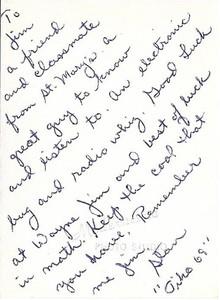 To
Jim
a friend
and classmate
from St. Mary's. a
great guy to know
and listen to. An electronic
bug and radio whiz. Good Luck
at Wayne Jim and best of luck
in math. Keep the cool that
you have. Remember
me Jim. Stan
"69"